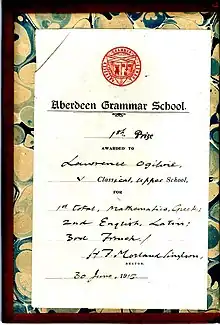 Aberdeen Grammar School.
1st Prize
AWARDED TO
Lawrence Ogilvie,
Classical, Upper School,
FOR
1st Total, Mathematics, Greek;
2nd English, Latin;
3rd French/
H. F. Morland Simpson,
RECTOR.
30 June, 1915